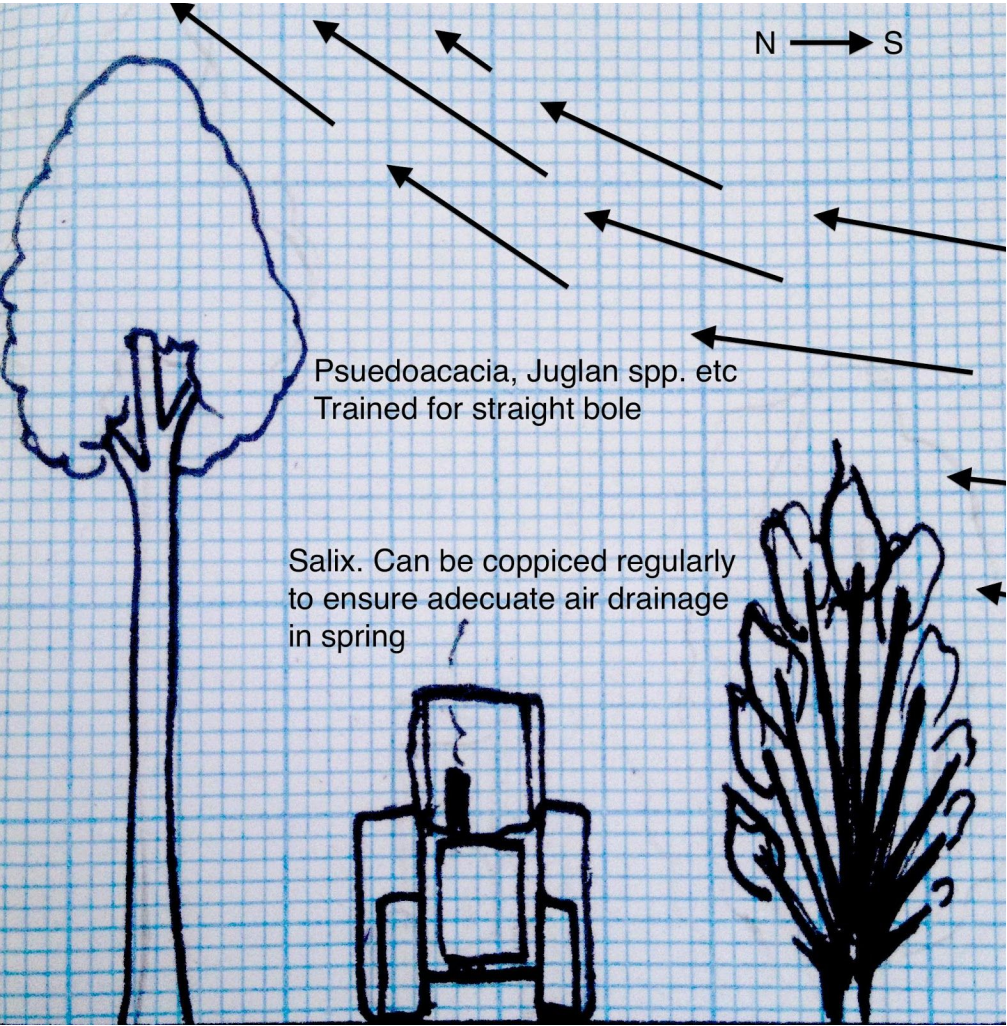 N S
Psuedoacacia, Juglan spp. etc
Trained for straight bole
Salix. Can be coppiced regularly
to ensure adecuate air drainage
in spring